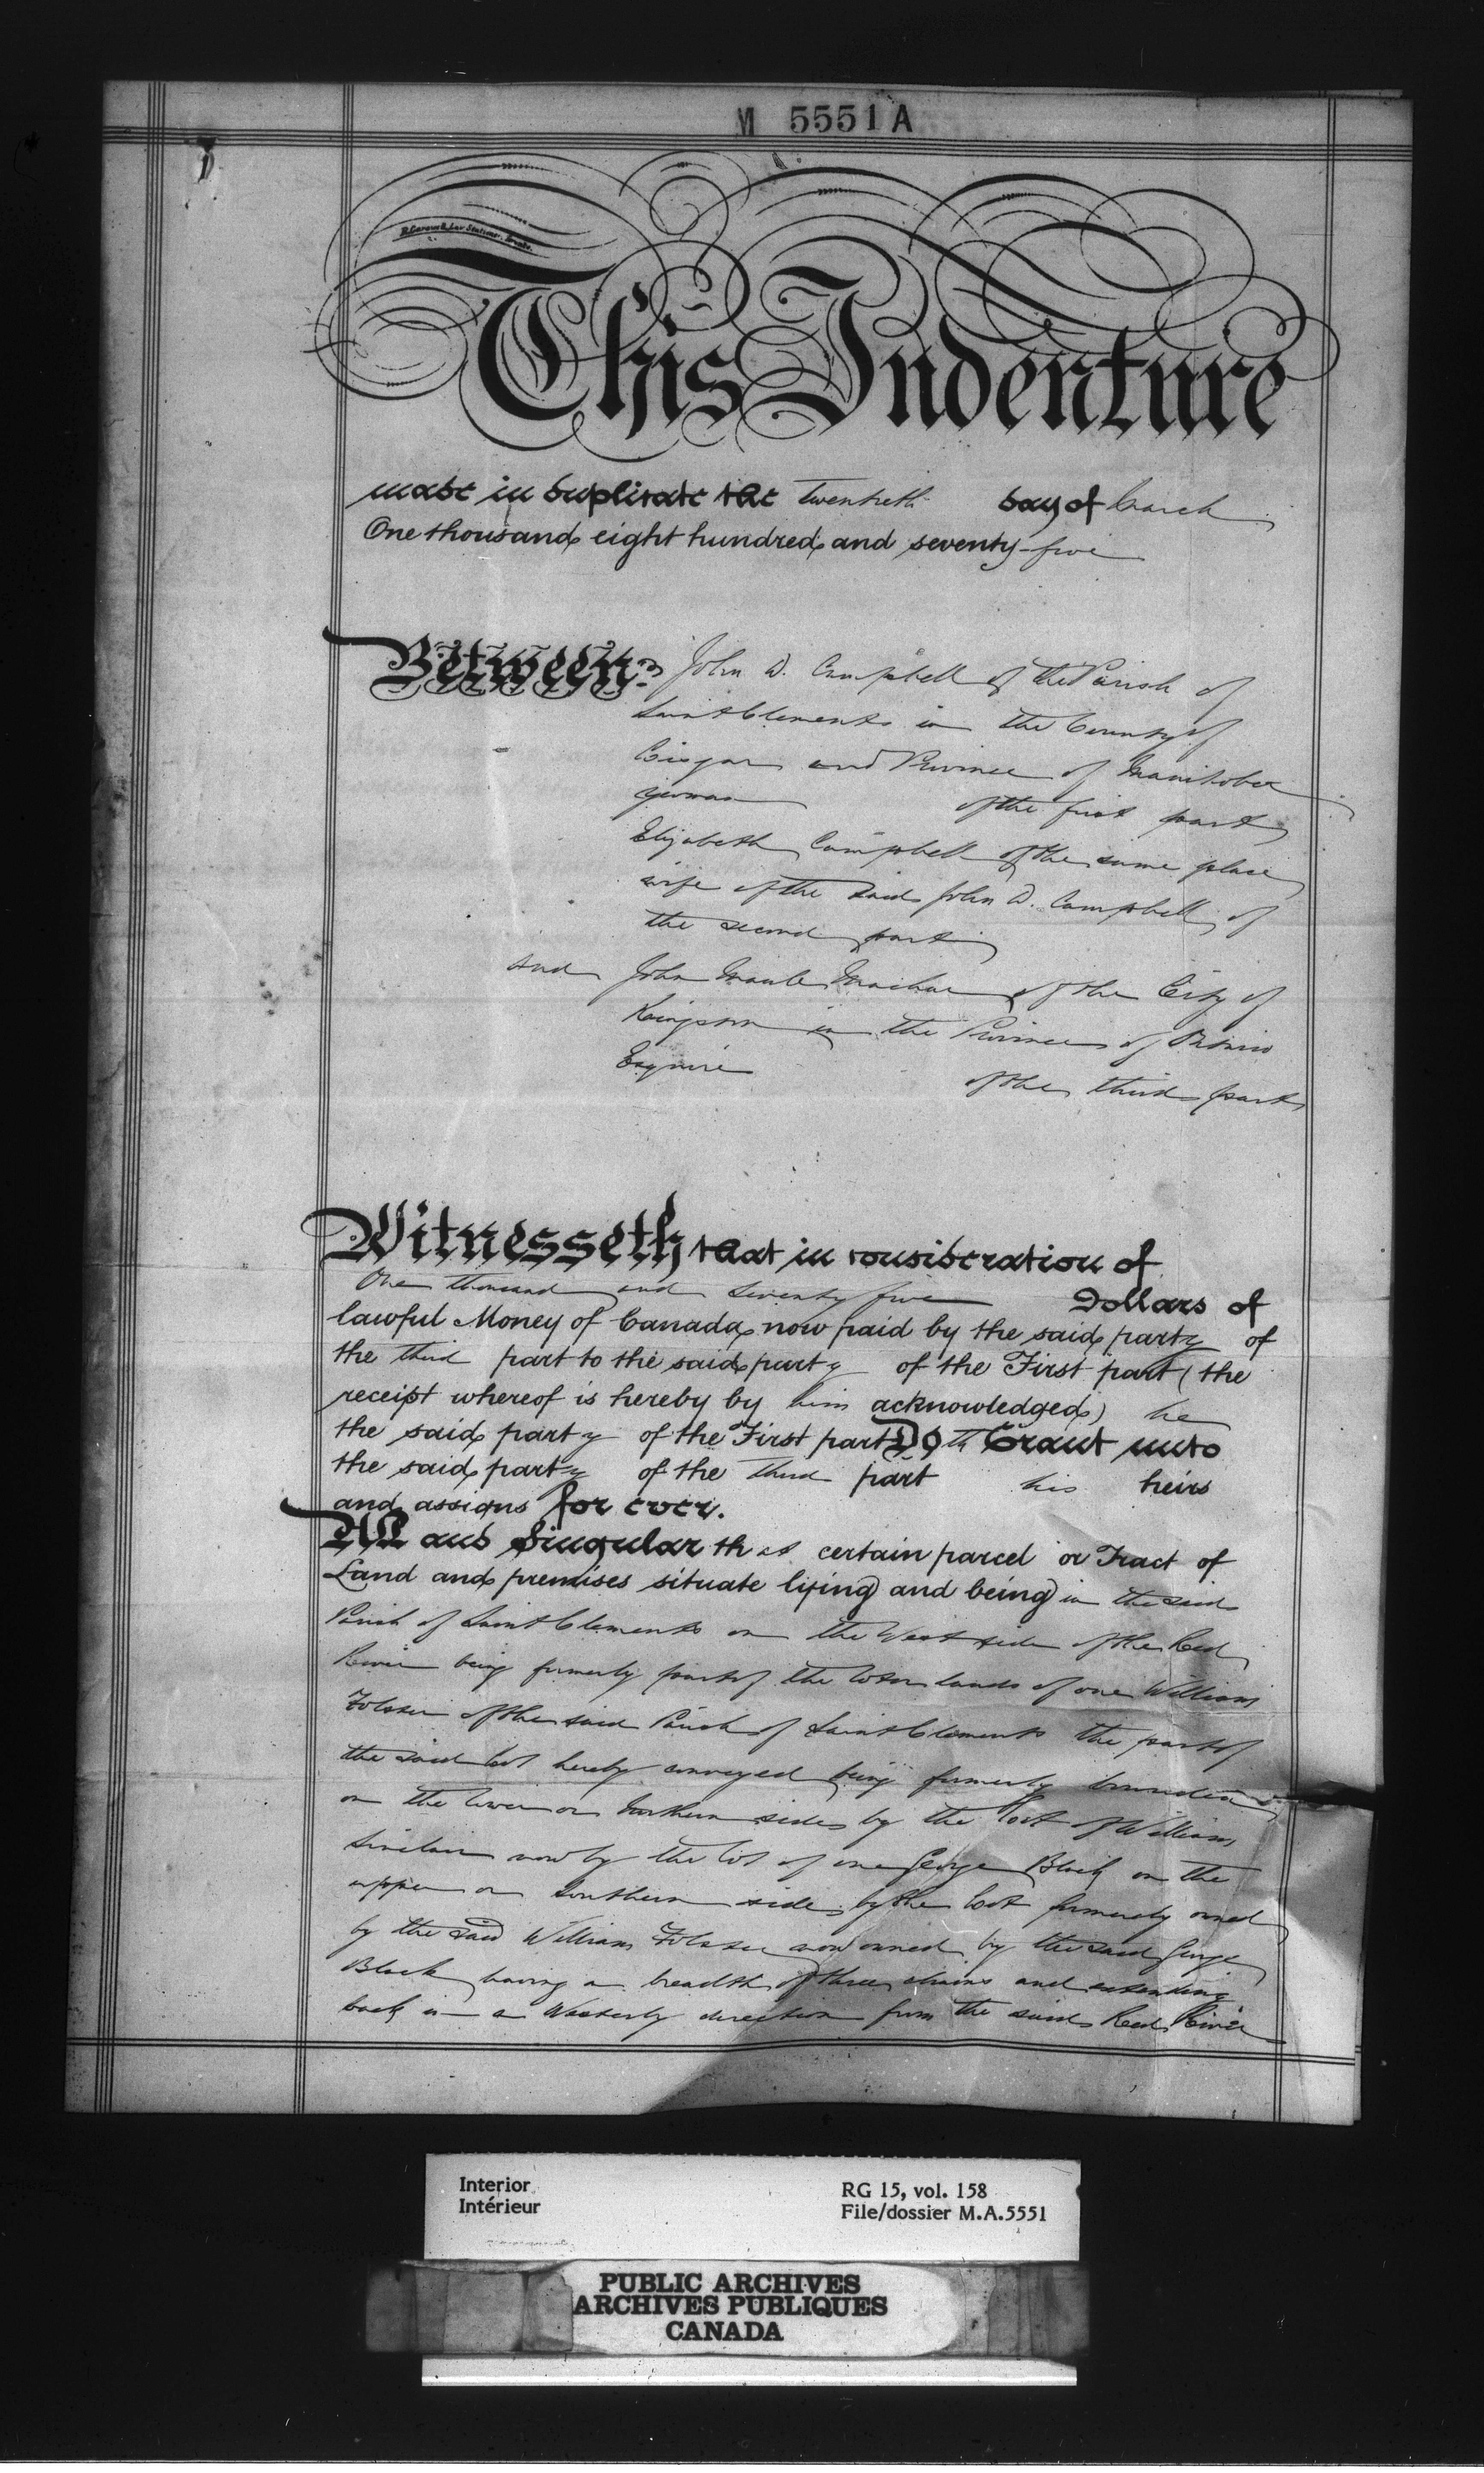 M 5551 A
This Indenture
made in duplicate the twentieth day of March
One thousand eight hundred and seventy-five
Between John D. Campbell of the Parish of
Saint Clements in the County of
Lisgar and Province of Manitoba
yeoman of the first part
Elizabeth Campbell of the same place
wife of the said John D. Campbell of
the second part
and John Machar of the City of
Kingston in the Province of Ontario
Esquire of the third part
Witnesseth that in consideration of
One thousand and seventy five Dollars of
lawful Money of Canada now paid by the said party of
the third part to the said party of the First part (the
receipt whereof is hereby by him acknowledged) he
the said party of the First part Doth Grant unto
the said party of the third part his heirs
and assigns for ever.
All and Singular that certain parcel or Tract of
Land and premises situate lying and being in the said
Parish of Saint Clements on the West side of the Red
River being formerly part of the lands of one William
Folster of the said Parish of Saint Clements the part of
the said lot hereby conveyed being formerly bounded
on the lower or Northern side by the lot of William
Sinclair now by the lot of one George Black on the
upper or Southern side by the lot formerly owned
by the said William Folster now owned by the said George
Black having a breadth of three chains and extending
back in a Westerly direction from the said Red River
Interior
Intérieur
RG 15, vol. 158
File/dossier M.A.5551
PUBLIC ARCHIVES
ARCHIVES PUBLIQUES
CANADA